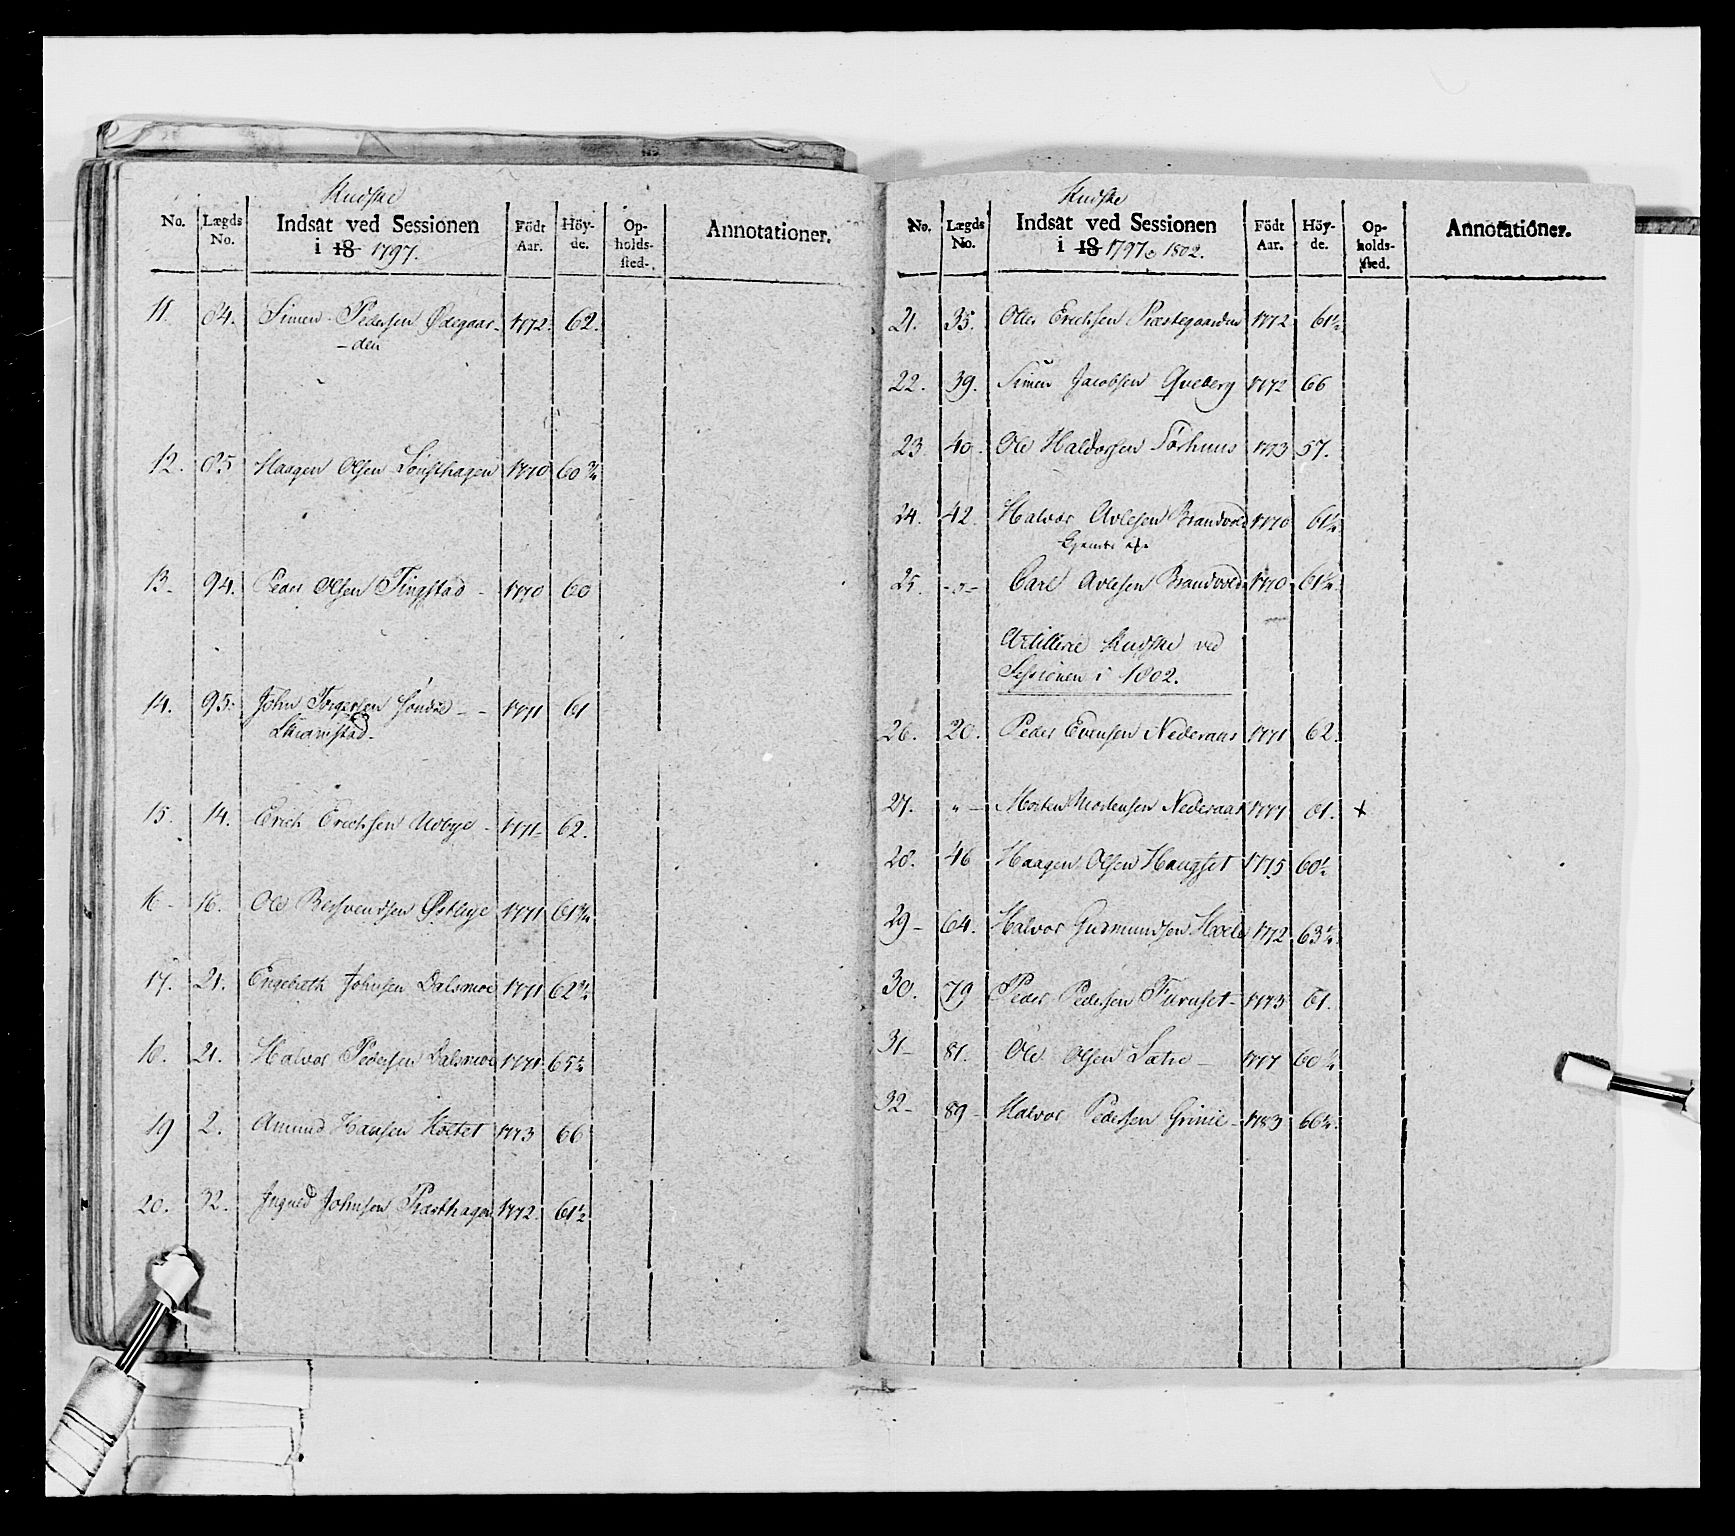 Kudske
No. Lægds No. Indsat ved Sessionen i 18 1797. Födt Aar. Höyde. Opholdssted. Annotationer.
11. 84. Simen Pedersen Ødegaar- 1772. 62.
-den
12. 85 Haagen Olsen 1770 60 3/4
13- 94. Peder Olsen Tingstad - 1770 60
14. 95. John Torgersen Søndre - - 1771 61
15. 14. Erich Erichsen Udbye - 1771- 62.
16- 16. Ole Østbye 1771 61 3/4
17. 21. Engebreth Johnsen Dalsmoe 1771 62 3/4
18. 21. Halvor Pedersen Dalsmoe 1771 65 1/2
19 2. Amund Hansen Holtet 1773 66
20. 32. Johnsen Præsthagen 1772. 61 1/2
Kudske
No. Lægds No. Indsat ved Sessionen i 18 1797 o 1802. Födt Aar. Höyde. Opholdssted. Annotationer.
21. 35. Otter Erichsen Præstegaarden 1772 61 1/2
22. 39. Simen Jacobsen Qveberg 1772 66
23. 40. Ole Haldorsen Torhuus 1773 57.
24. 42. Halvor Avlesen Brandvold 1770 61 1/4
25. -"- Carl Avlesen Brandvold 1770 61 1/4
Artillerie Kudske ved
Sessionen i 1802.
26. 20. Peder Evensen Nederaas 1771 62.
27. " - Morten Mortensen Nederaas 1777 61. +
28. 46 Haagen Olsen Haugset 1775 60 1/2
29- 64. Halvor Gudmundsen 1772 63 1/4
30. 79 Peder Pedersen Furuset - 1773 61.
31- 81. Ole Olsen Sætre - 1777 60 1/4
32- 89- Halvor Pedersen Grinie - 1783 66 1/4